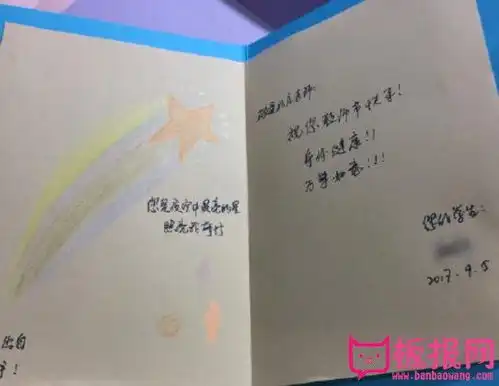 您是夜空中最亮的星
照亮我前行
您自
!
敬爱的老师
祝您教师节快乐!
身体健康!!
万事如意!!!
您的学生:
2017.9.5
板报网
www.banbaowang.com